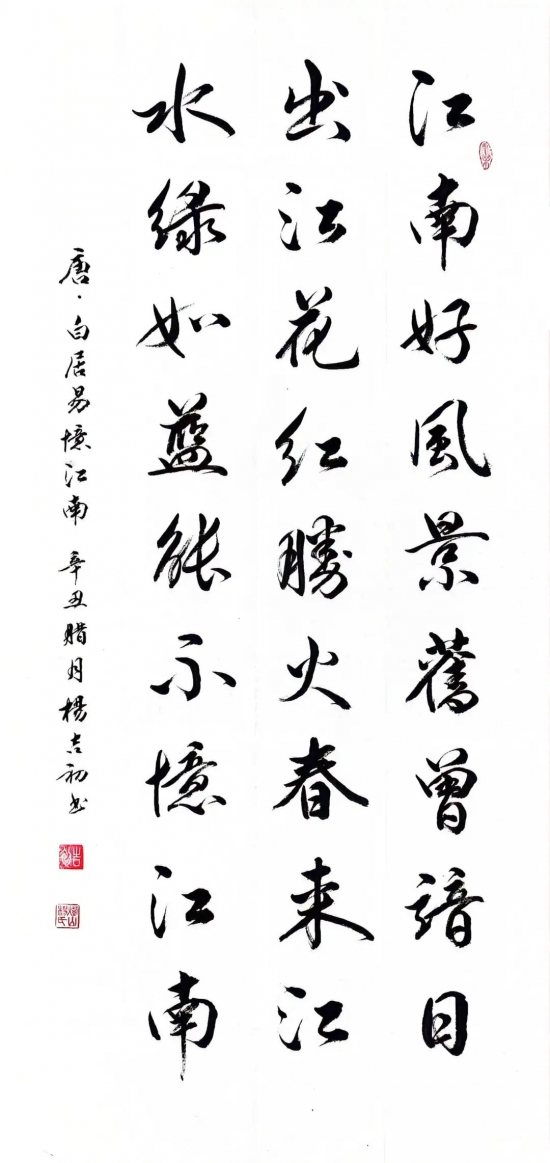 江南好風景舊曾諳日
出江花红勝火春来江
水緑如藍能不憶江南
唐·白居易憶江南 辛丑腊月楊吉初书